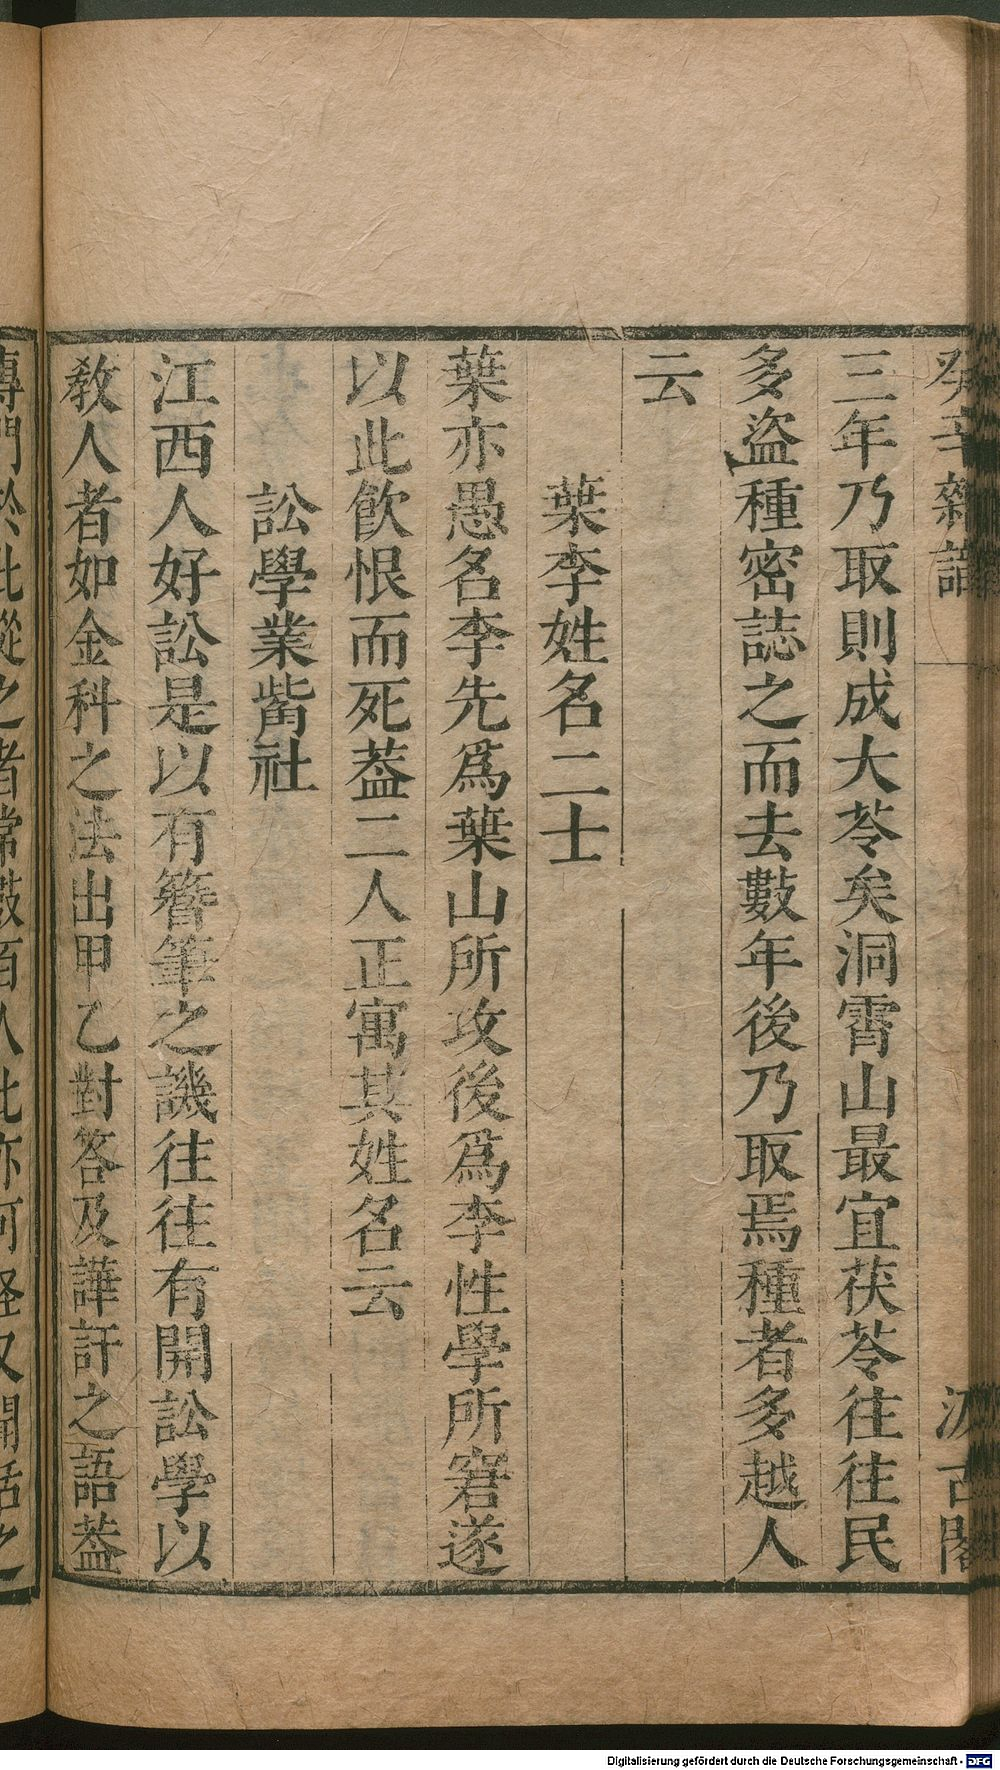 癸辛雜識
汲古閣
三年乃取則成大苓矣洞霄山最宜茯苓往往民
多盜種密誌之而去數年後乃取焉種者多越人
云
葉李姓名二士
葉亦愚名李先爲葉山所攻後爲李性學所窘遂
以此飲恨而死葢二人正寓其姓名云
訟學業觜社
江西人好訟是以有簪筆之譏往往有開訟學以
教人者如金科之法出甲乙對答及譁訐之語葢
專門於此從之者常數百人此亦可怪又聞括之
Digitalisierung gefördert durch die Deutsche Forschungsgemeinschaft - DFG